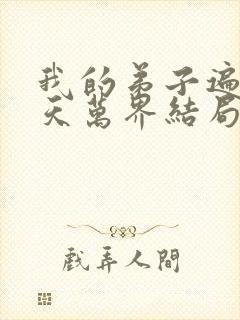 我的弟子遍
天萬界結局
戲弄人間